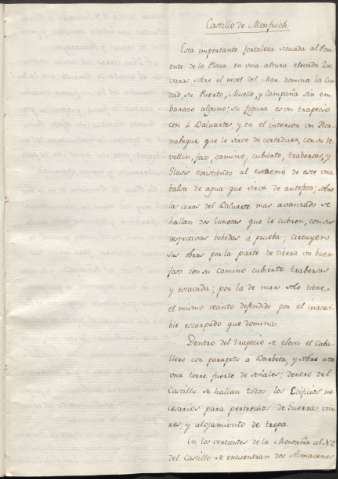 Castillo de Monjuich.
Esta importante fortaleza situada al Poni-
ente de la Plaza en una altura elevada
varas sobre el nivel del Mar domina la Ciu-
dad, su Puerto, Muelle, y Campiña sin em-
barazo alguno; su figura es un trapecio
con 4 Baluartes, y en el interior un Hor-
nabeque que le sirve de cortadura, con su re-
vellin, foso, camino cubierto, traberzas, y
Glasis
balsa de agua que sirve de antefoso; sobre
las caras del Baluarte mas avanzado se
hallan dos lunetas que le cubren, con sus
respectivas bobedas a prueba; circuyen
sus obras por la parte de tierra un buen
foso con su camino cubierto traberzas
y estacada; por la de mar solo tiene
el mismo recinto defendido por el inacce-
sible escarpado que domina.
Dentro del trapecio se eleva el Caba-
llero con parapeto a Barbeta, y sobre este
una torre fuerte de señales; dentro del
Castillo se hallan todos los Edificios ne-
cesarios para pertrechos de Guerra, vive-
res y alojamiento de tropa.
En las vertientes de la Montaña al N.E.
del Castillo se encuentran dos Almacenes